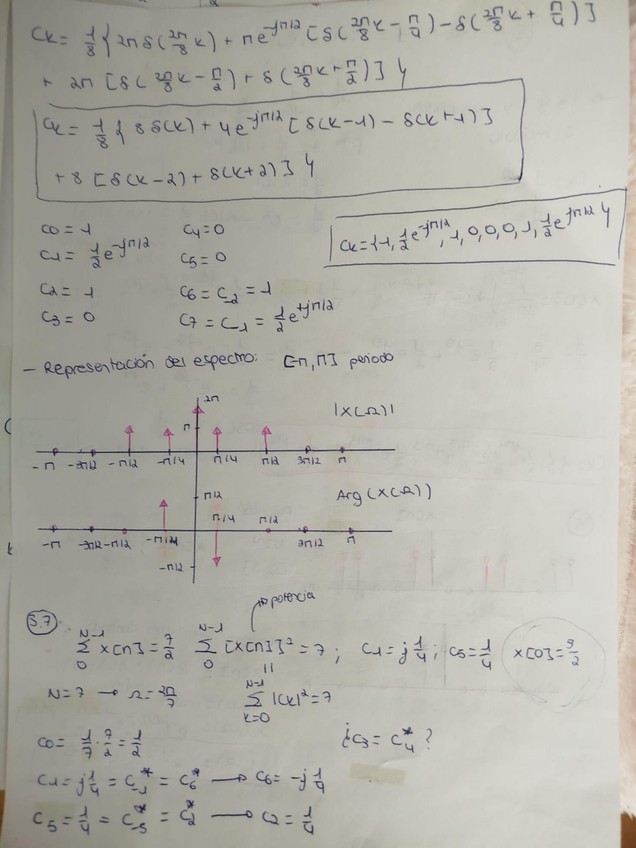 Ck = 1/8 { 2π δ(2π/8 k) + π e^-jπ/2 [δ(2π/8 k - π/4) - δ(2π/8 k + π/4)]
+ 2π [δ(2π/8 k - π/2) + δ(2π/8 k + π/2)] }
Ck = 1/8 { 8 δ(k) + 4e^-jπ/2 [δ(k-1) - δ(k+1)]
+ 8 [δ(k-2) + δ(k+2)] }
C0 = 1 C4 = 0
Ck = {1, 1/2 e^-jπ/2, 1, 0, 0, 0, 1, 1/2 e^jπ/2}
C1 = 1/2 e^-jπ/2 C5 = 0
C2 = 1 C6 = C-2 = 1
C3 = 0 C7 = C-1 = 1/2 e^+jπ/2
- Representación del espectro: [-π, π] periodo
2π |X(Ω)|
π
-π -3π/2 -π/2 -π/4 π/4 π/2 3π/2 π
π/2 Arg(X(Ω))
π/4
-π -3π/2 -π/2 -π/4 π/2 3π/2 π
-π/2
potencia
3.7
N-1 Σ 0 x[n] = 7/2 N-1 Σ 0 [x[n]]² = 7 ; C1 = j 1/4 ; C5 = 1/4 x[0] = 9/2
||
N = 7 → Ω = 2π/7 N-1 Σ k=0 |Ck|² = 7
C0 = 1/7 · 7/2 = 1/2 ¿C3 = C4* ?
C1 = j 1/4 = C-1* = C6* → C6 = -j 1/4
C5 = 1/4 = C-5* = C2* → C2 = 1/4